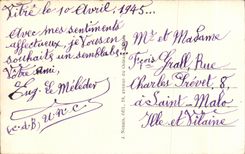 Vitré le 10 Avril, 1945...
Avec mes sentiments
affectueux, je Vous en
souhaits un semblable
Votre Ami,
Eug. Le Méléder
(C.d.B) U.N.C
Mr et Madame
Grall, Rue
Charles Prévet, 8,
à Saint-Malo
Ille et Vilaine